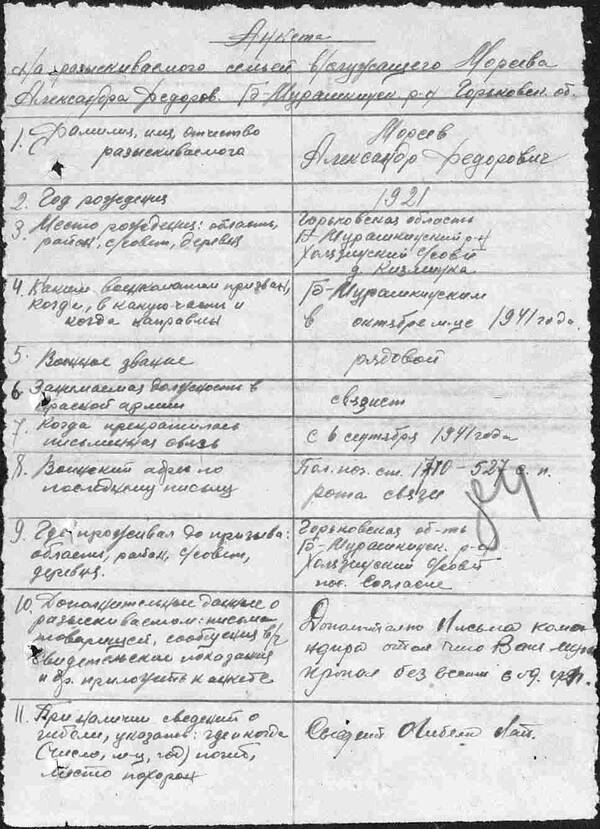 Анкета
На разыскиваемого семьей в/служащего Мореева
Александра Федоров. Б-Мурашкинск р-н Горьковск. об.
1. Фамилия, имя, отчество
разыскиваемого
Мореев
Александр Федорович
2. Год рождения
1921
3. Место рождения: область,
район, с/совет, деревня
Горьковская область
Б-Мурашкинский р-н
Холязинский с/совет
д. Кизлещука
4. Каким военкоматом призван,
когда, в какую часть и
когда направлен
Б-Мурашкинским
в октябре м-це 1941 года.
5. Воинское звание
рядовой
6. Занимаемая должность в
Красной армии
связист
7. Когда прекратилась
письменная связь
с 6 сентября 1941 года
8. Воинский адрес по
последнему письму
Пол. поч. ст. 1710 - 527 с. п.
рота связи
9. Где проживал до призыва:
область, район, с/совет,
деревня.
Горьковская об-ть
Б-Мурашкинск. р-н
Холязинский с/совет
пос. Согласие
10. Дополнительные данные о
разыскиваемом: письма
товарищей, сообщения в/ч
свидетельские показания
и др. приложить к анкете
Письма коман
дира о том что Ваш муж
пропал без вести
11. При наличии сведений о
гибели, указать: где и когда
(число, м-ц, год) погиб,
место похорон